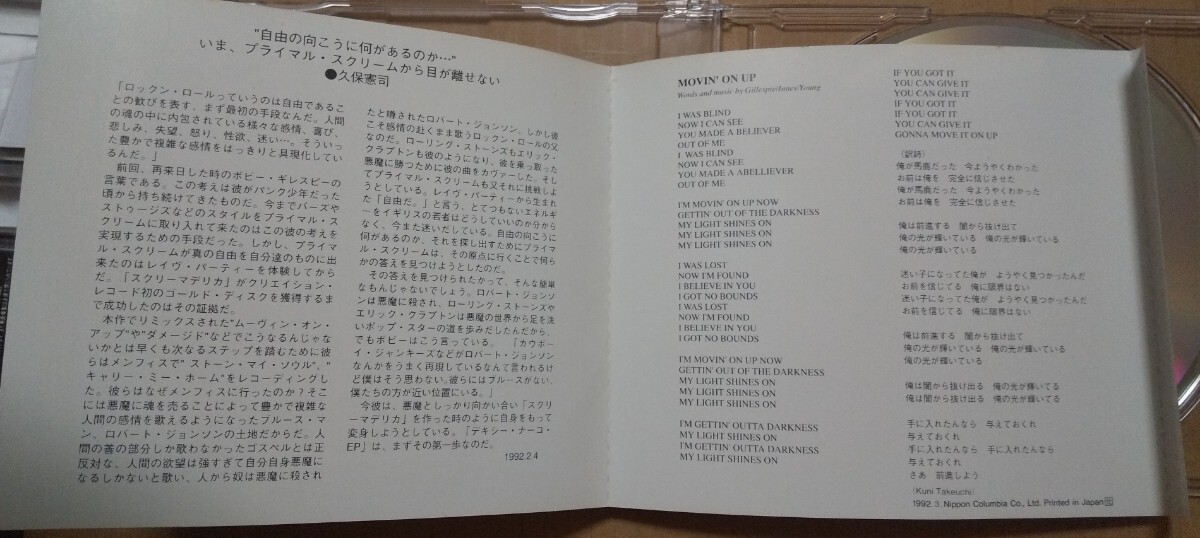 "自由の向こうに何があるのか…"
いま、プライマル・スクリームから目が離せない
●久保憲司
「ロックン・ロールっていうのは自由であるこ
との歓びを表す、まず最初の手段なんだ。人間
の魂の中に内包されている様々な感情、喜び、
悲しみ、失望、怒り、性欲、迷い…。そういっ
た豊かで複雑な感情をはっきりと具現化してい
るんだ。」
前回、再来日した時のボビー・ギレスピーの
言葉である。この考えは彼がパンク少年だった
頃から持ち続けてきたものだ。今までバーズや
ストゥージズなどのスタイルをプライマル・ス
クリームに取り入れて来たのはこの彼の考えを
実現するための手段だった。しかし、プライマ
ル・スクリームが真の自由を自分達のものに出
来たのはレイヴ・パーティーを体験してから
だ。「スクリーマデリカ」がクリエイション・
レコード初のゴールド・ディスクを獲得するま
で成功したのはその証拠だ。
本作でリミックスされた"ムーヴィン・オン・
アップ"や"ダメージド"などでこうなるんじゃな
いかとは早くも次なるステップを踏むために彼
らはメンフィスで" ストーン・マイ・ソウル"、"
キャリー・ミー・ホーム"をレコーディングし
た。彼らはなぜメンフィスに行ったのか？そこ
には悪魔に魂を売ることによって豊かで複雑な
人間の感情を歌えるようになったブルース・マ
ン、ロバート・ジョンソンの土地だからだ。人
間の善の部分しか歌わなかったゴスペルとは正
反対な、人間の欲望は強すぎて自分自身悪魔に
なるしかないと歌い、人から奴は悪魔に殺され
たと噂されたロバート・ジョンソン、しかし彼
こそ感情の赴くまま歌うロックン・ロールの父
なのだ。ローリング・ストーンズもエリック・
クラプトンも彼のようになり、彼を乗っ取った
悪魔に勝つために彼の曲をカヴァーした。そし
てプライマル・スクリームも又それに挑戦しよ
うとしている。レイヴ・パーティーから生まれ
た「自由だ。」と言う、とてつもないエネルギ
ーをイギリスの若者はどうしていいのか分から
なく、今また迷いだしている。自由の向こうに
何があるのか、それを探し出すためにプライマ
ル・スクリームは、その原点に行くことで何ら
かの答えを見つけようとしたのだ。
その答えを見つけられたかって、そんな簡単
なもんじゃないでしょう。ロバート・ジョンソ
ンは悪魔に殺され、ローリング・ストーンズや
エリック・クラプトンは悪魔の世界から足を洗
いポップ・スターの道を歩みだしたんだから、
でもボビーはこう言っている。 「カウボー
イ・ジャンキーズなどがロバート・ジョンソン
なんかをうまく再現しているなんて言われるけ
ど僕はそう思わない。彼らにはブルースがない、
僕たちの方が近い位置にいる。」
今彼は、悪魔としっかり向かい合い「スクリ
ーマデリカ」を作った時のように自身をもって
変身しようとしている。「デキシー・ナーコ・
EP」は、まずその第一歩なのだ。
1992.2.4
MOVIN' ON UP
Words and music by Gillespie/Innes/Young
I WAS BLIND
NOW I CAN SEE
YOU MADE A BELIEVER
OUT OF ME
I WAS BLIND
NOW I CAN SEE
YOU MADE A ABELLIEVER
OUT OF ME
I'M MOVIN' ON UP NOW
GETTIN' OUT OF THE DARKNESS
MY LIGHT SHINES ON
MY LIGHT SHINES ON
MY LIGHT SHINES ON
I WAS LOST
NOW I'M FOUND
I BELIEVE IN YOU
I GOT NO BOUNDS
I WAS LOST
NOW I'M FOUND
I BELIEVE IN YOU
I GOT NO BOUNDS
I'M MOVIN' ON UP NOW
GETTIN' OUT OF THE DARKNESS
MY LIGHT SHINES ON
MY LIGHT SHINES ON
MY LIGHT SHINES ON
I'M GETTIN' OUTTA DARKNESS
MY LIGHT SHINES ON
I'M GETTIN' OUTTA DARKNESS
MY LIGHT SHINES ON
IF YOU GOT IT
YOU CAN GIVE IT
YOU CAN GIVE IT
IF YOU GOT IT
IF YOU GOT IT
YOU CAN GIVE IT
GONNA MOVE IT ON UP
（訳詩）
俺が馬鹿だった 今ようやくわかった
お前は俺を 完全に信じさせた
俺が馬鹿だった 今ようやくわかった
お前は俺を 完全に信じさせた
俺は前進する 闇から抜け出て
俺の光が輝いている 俺の光が輝いている
俺の光が輝いている
迷い子になってた俺が ようやく見つかったんだ
お前を信じてる 俺に限界はない
迷い子になってた俺が ようやく見つかったんだ
お前を信じてる 俺に限界はない
俺は前進する 闇から抜け出て
俺の光が輝いている 俺の光が輝いている
俺の光が輝いている
俺は闇から抜け出る 俺の光が輝いてる
俺は闇から抜け出る 俺の光が輝いてる
手に入れたんなら 与えておくれ
与えておくれ
手に入れたんなら 手に入れたんなら
与えておくれ
さあ 前進しよう
(Kuni Takeuchi)
1992. 3. Nippon Columbia Co., Ltd. Printed in Japan